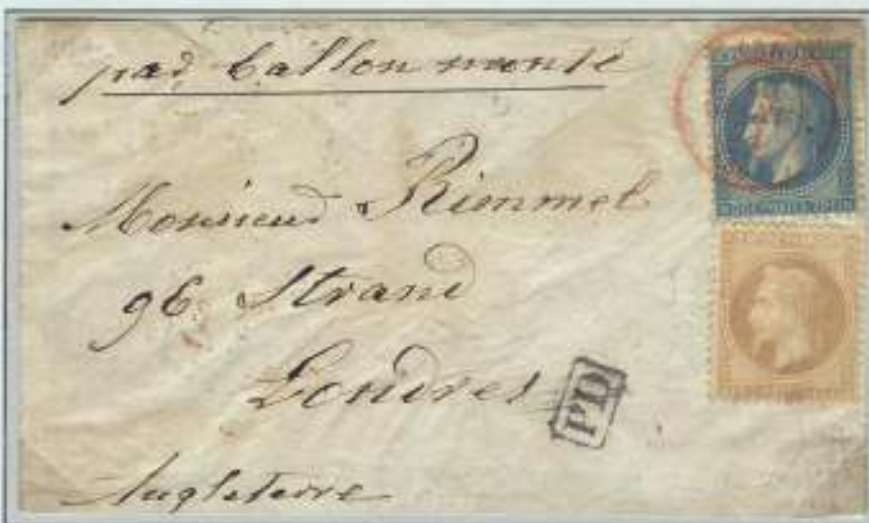 par ballon monté
Monsieur Rimmel
96 Strand
Londres
PD
Angleterre